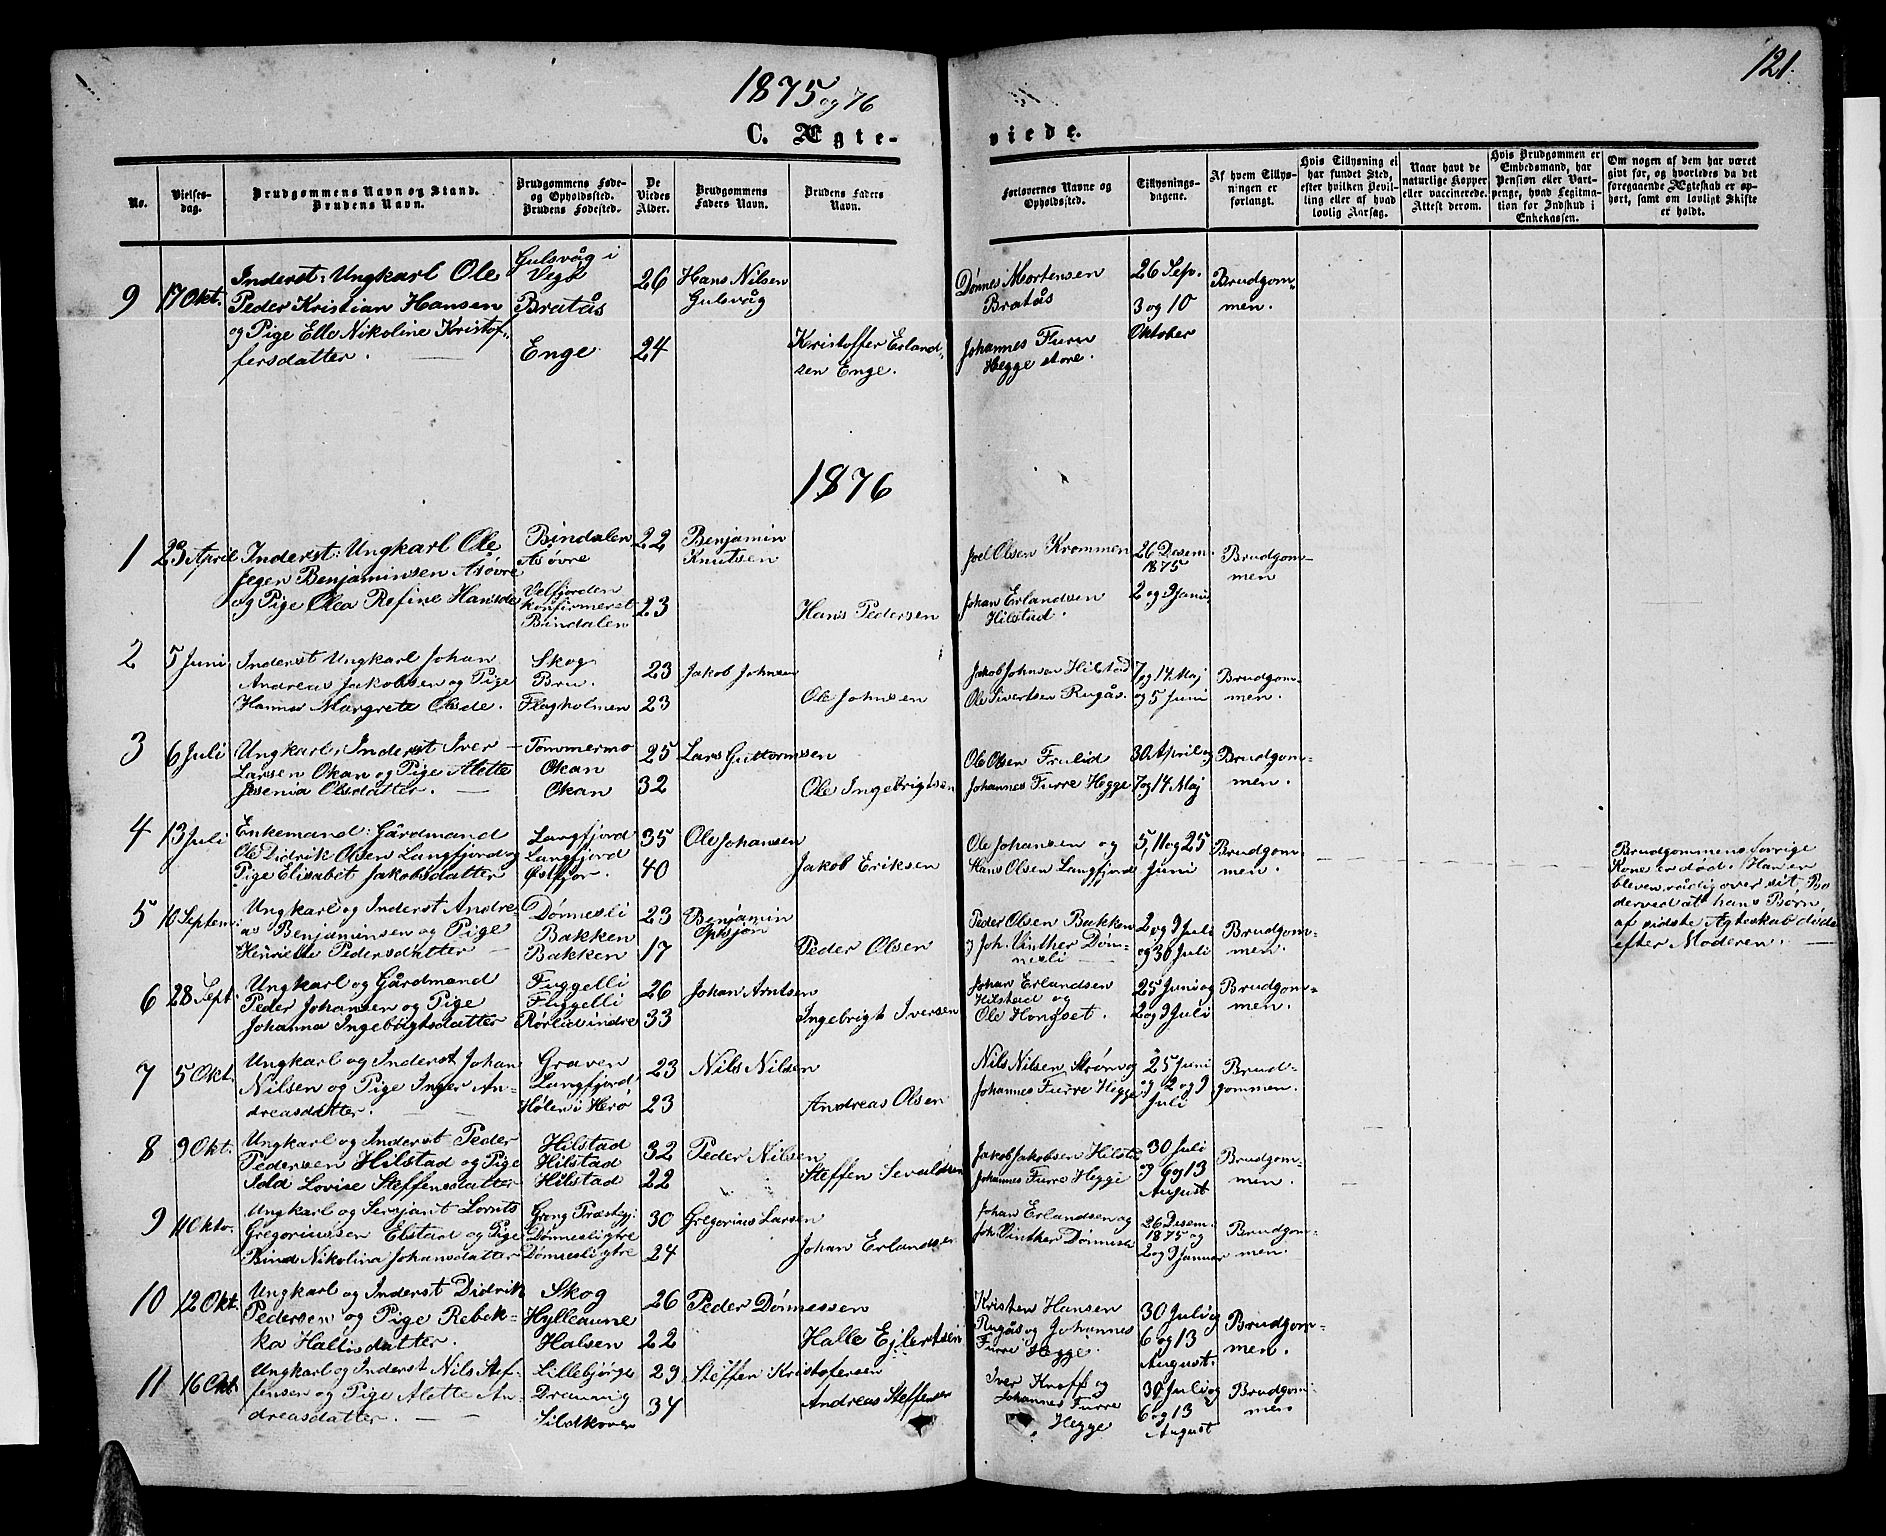 121.
1875 og 76
C. Ægteviede.
No.
Vielsesdag.
Brudgommens Navn og Stand.
Brudens Navn.
Brudgommens Føde-
og Opholdssted.
Brudens Fødested.
De
Viedes
Alder.
Brudgommens
Faders Navn.
Brudens Faders
Navn.
Forlovernes Navne og
Opholdssted.
Tillysnings-
dagene.
Af hvem Tillys-
ningen er
forlangt.
Hvis Tillysning ei
har fundet Sted,
efter hvilken Bevil-
ling eller af hvad
lovlig Aarsag.
Naar havt de
naturlige Kopper
eller vaccinerede.
Attest derom.
Hvis Brudgommen er
Embedsmand, har
Pension eller Vart-
penge, hvad Legitima-
tion for Indskud i
Enkekassen.
Om nogen af dem har været
gift før, og hvorledes da det
foregaaende Ægteskab er op-
hørt, samt om lovligt Skifte
er holdt.
9
17 Okt.
Inderst: Ungkarl Ole
Peder Kristian Hansen
og Pige Elle Nikoline Kristof-
fersdatter.
Gulsvåg i
Vegø
Bratås
Enge
26
24
Hans Nilsen
Gulsvåg
Kristoffer Erland-
sen Enge.
Dønnes Mortensen
Bratås
Johannes Furu
Hegge store.
26 Sep.
3 og 10
Oktober
Brudgom-
men.
1876
1
23 April
Inderst: Ungkarl Ole
Jegen Benjaminsen Asøvre
og Pige Olea Refine Hansd.
Bindalen
Asøvre
Velfjorden
konfirmeret
Bindalen
22
23
Benjamin
Knutsen
Hans Pedersen
Joel Olsen Krommen
Johan Erlandsen
Hilstad.
26 Desem.
1875
2 og 9 Janu.
Brudgom-
men
2
5 Juni
Inderst Ungkarl Johan
Andreas Jakobsen og Pige
Hanna Margrete Olsd.
Skog
Bru.
Flagholmen
23
23
Jakob Johnsen
Ole Johnsen
Jakob Johnsen Hilstad
Ole Sivertsen Rugås.
7 og 14 Maj
og 5 Juni
Brudgom-
men.
3
6 Juli
Ungkarl, Inderst Iver
Larsen Okan og Pige Alette
Jesenia Olsdatter.
Tømmermo
Okan
Okan
25
32
Lars Guttormsen
Ole Ingebrigtsen
Ole Olsen Frulid
Johannes Furre Hegge
30 April og
7 og 14 Maj
Brudgom-
men.
4
13 Juli
Enkemand: Gårdmand
Ole Didrik Olsen Langfjord og
Pige Elisabet Jakobsdatter
Langfjord
Langfjord
Østfjor.
35
40
Ole Johansen
Jakob Eriksen
Ole Johansen og
Hans Olsen Langfjord
5, 11 og 25
Juni
Brudgom-
men.
Brudgommens forrige
Kone er død. Han er
bleven rådig over sit Bo
derved at hans Børn
af sidste Ægteskab døde
efter Moderen.
5
10 Septem:
Ungkarl og Inderst Andre-
as Benjaminsen og Pige
Henriette Pedersdatter
Dønnesli
Bakken
Bakken
23
17
Benjamin
Opsjøn
Peder Olsen
Peder Olsen Bakken
og Joh. Vinther Døn-
nesli
2 og 9 Juli
og 30 Juli
Brudgom-
men.
6
28 Sept:
Ungkarl og Gårdmand
Peder Johansen og Pige
Johanna Ingebrigtsdatter
Fuggelli
Fuggelli
Rørlid indre
26
33
Johan Arntsen
Ingebrigt Iversen
Johan Erlandsen
Hilstad og
Ole Hongset.
25 Juni og
2 og 9 Juli
Brudgom-
men.
7
5 Okt.
Ungkarl og Inderst Johan
Nilsen og Pige Inger An-
dreasdatter.
Graven
Langfjord
Holen i Herø
23
23
Nils Nilsen
Andreas Olsen
Nils Nilsen Strøm og
Johannes Furre Hegge
25 Juni
og 2 og 9
Juli
Brud-
gommen.
8
9 Okt.
Ungkarl og Inderst Peder
Pedersen Hilstad og Pige
Lovise Steffensdatter
Hilstad
Hilstad
Hilstad
32
22
Peder Nilsen
Steffen Sevaldsen
Jakob Jakobsen Hilstad
Johannes Furre Hegge
30 Juli
og 6 og 13
August
Brudgom-
men.
9
11 Okto.
Ungkarl og Serjant Lornts
Gregoriussen Elstad og Pige
Bina Nikolina Johansdatter
Grong Præstegj:
Dønnesli ytre
Dønnesli ytre
30
24
Gregorius Larsen
Johan Erlandsen
Johan Erlandsen og
Joh. Vinther Dønnesli
26 Desem-
1875 og
2 og 9 Januar
Brudgom-
men.
10
12 Okt.
Ungkarl og Inderst Didrik
Pedersen og Pige Rebek-
ka Hallisdatter.
Skog
Hylleaune
Halsen
26
22
Peder Dønnessen
Halle Ejlertsen
Kristen Hansen
Rugås og Johannes
Furre Hegge
30 Juli og
6 og 13
August.
Brudgom-
men.
11
16 Okt.
Ungkarl og Inderst Nils Stef-
fensen og Pige Alette An-
dreasdatter.
Lillebjørge
Drauning
Sildkoven
29
34
Steffen Kristofersen
Andreas Steffensen
Iver Kroff og
Johannes Furre
Hegge
30 Juli og
6 og 13
August
Brudgom-
men